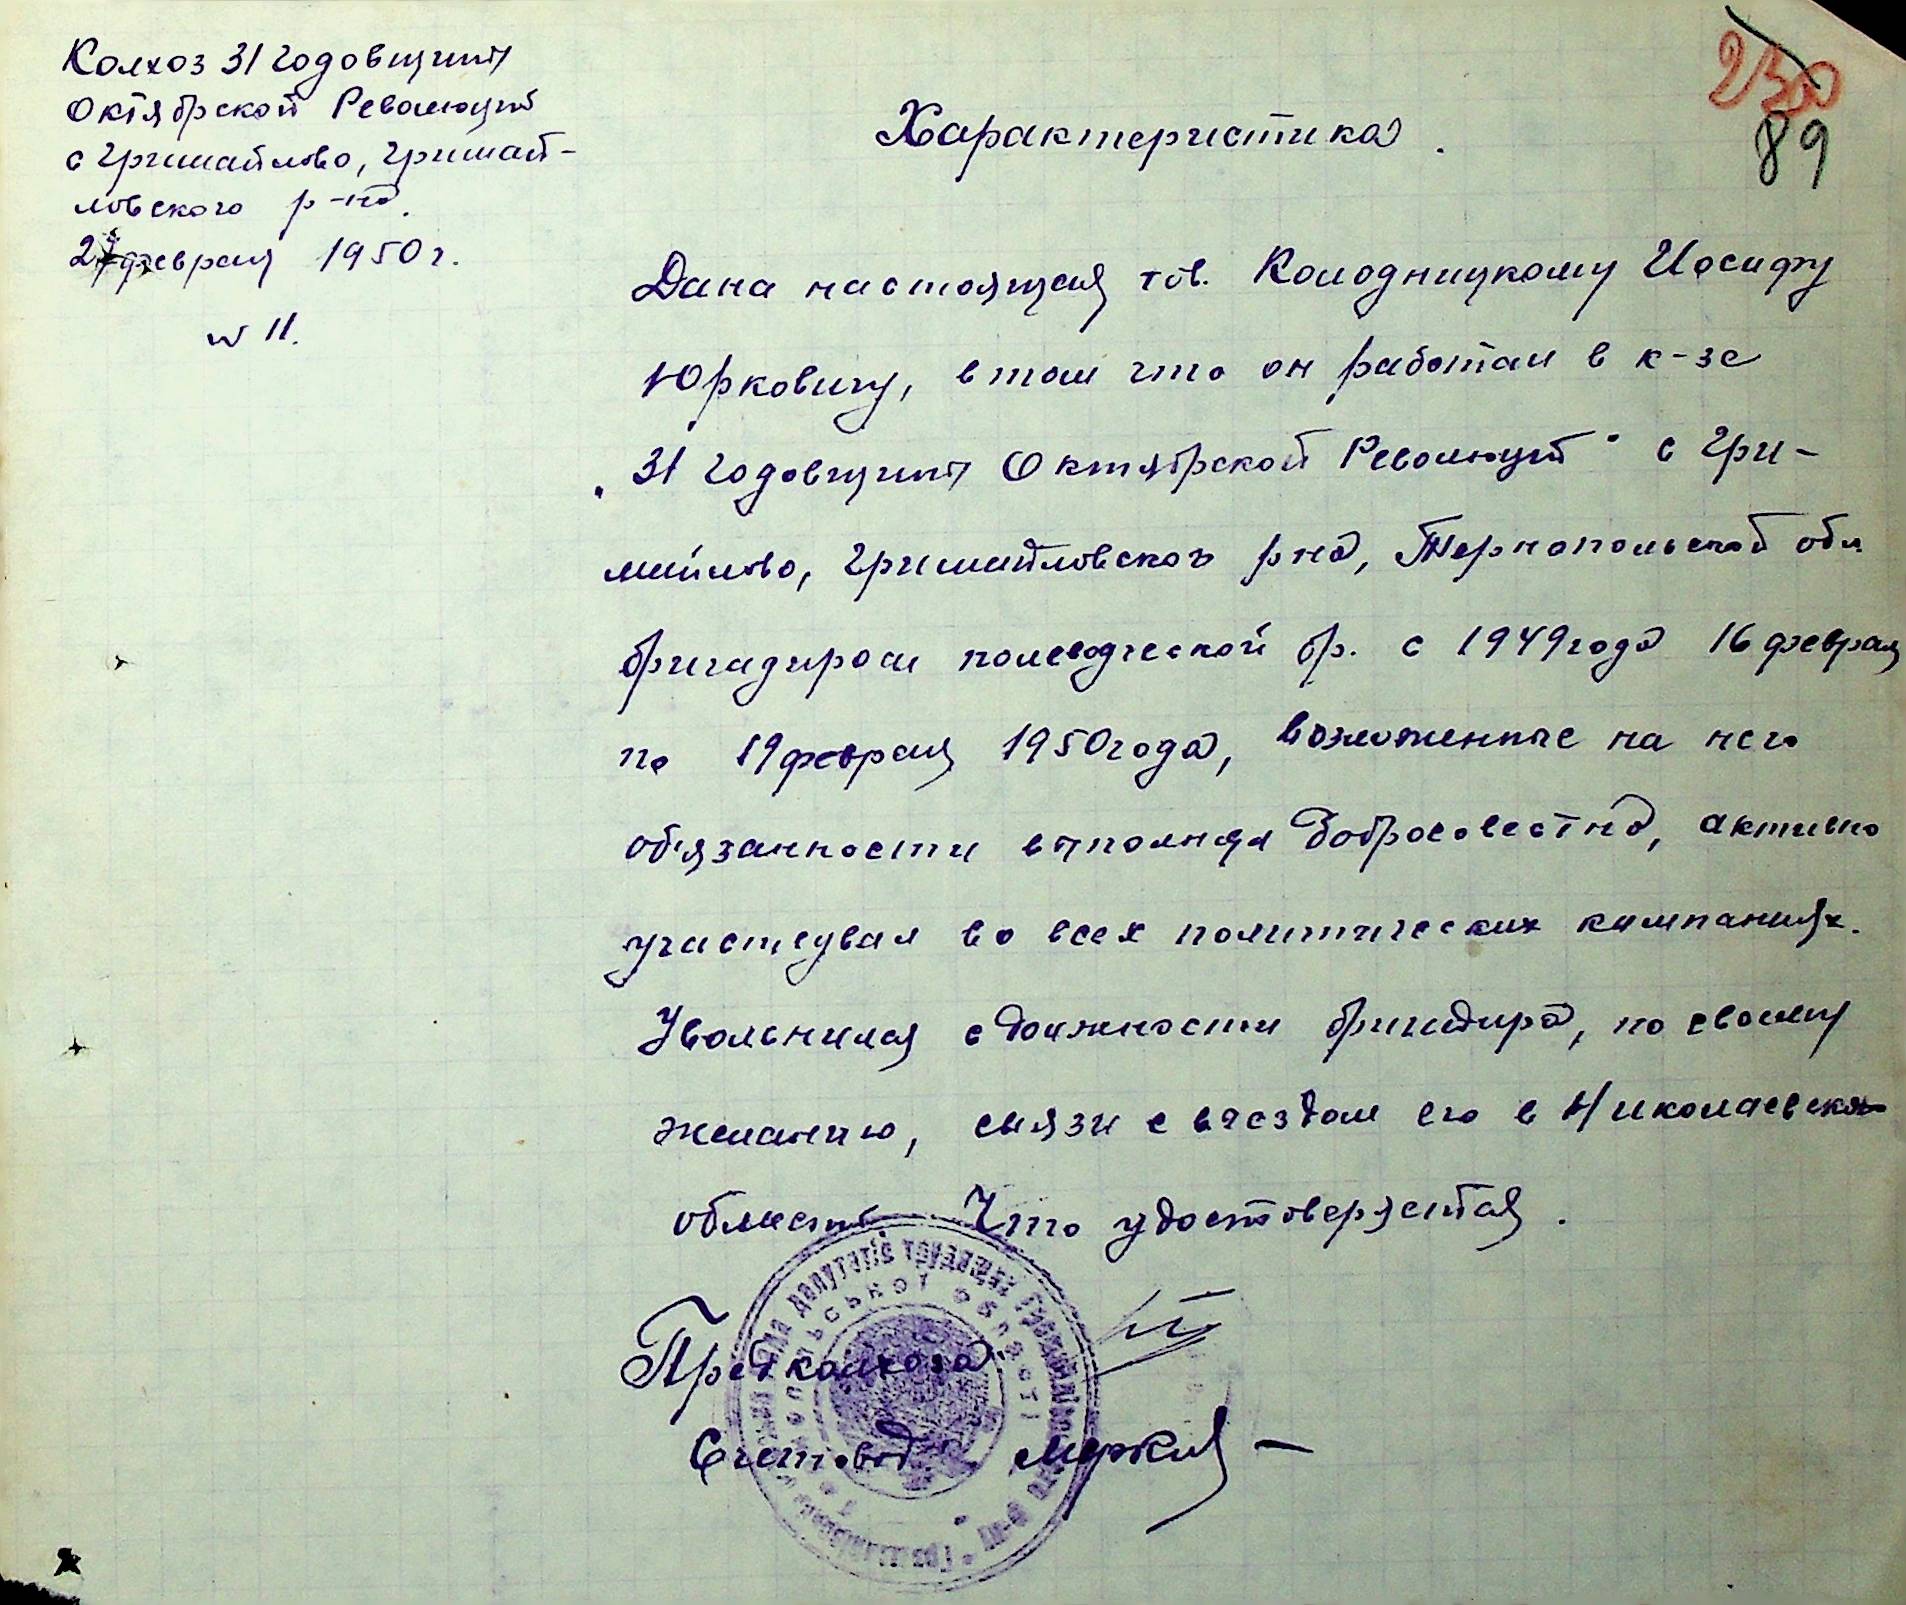 Колхоз 31 годовщины
Октябрской Революций
с Гримайлово, Гримай-
ловского р-на.
февраля 1950 г.
N 11.
250
89
Характеристика.
Дана настоящая тов. Колодницкому Иосифу
Юрковичу, в том что он работал в к-зе
"31 годовщины Октябрской Революций" с Гри-
майлово, Гримайловского рна, Тернопольской обл
бригадиром полеводческой бр. с 1949 года 16 февраля
по 19 февраля 1950 года, возложенные на него
обязанности выполнял добросовестно, активно
участвувал во всех политических кампаниях.
Увольнился с должности бригадира, по своему
желанию, связи с выездом его в Николаевскую
область. Что удостоверяется.
Предколхоза:
Счетовод:
депутатів трудящих
області